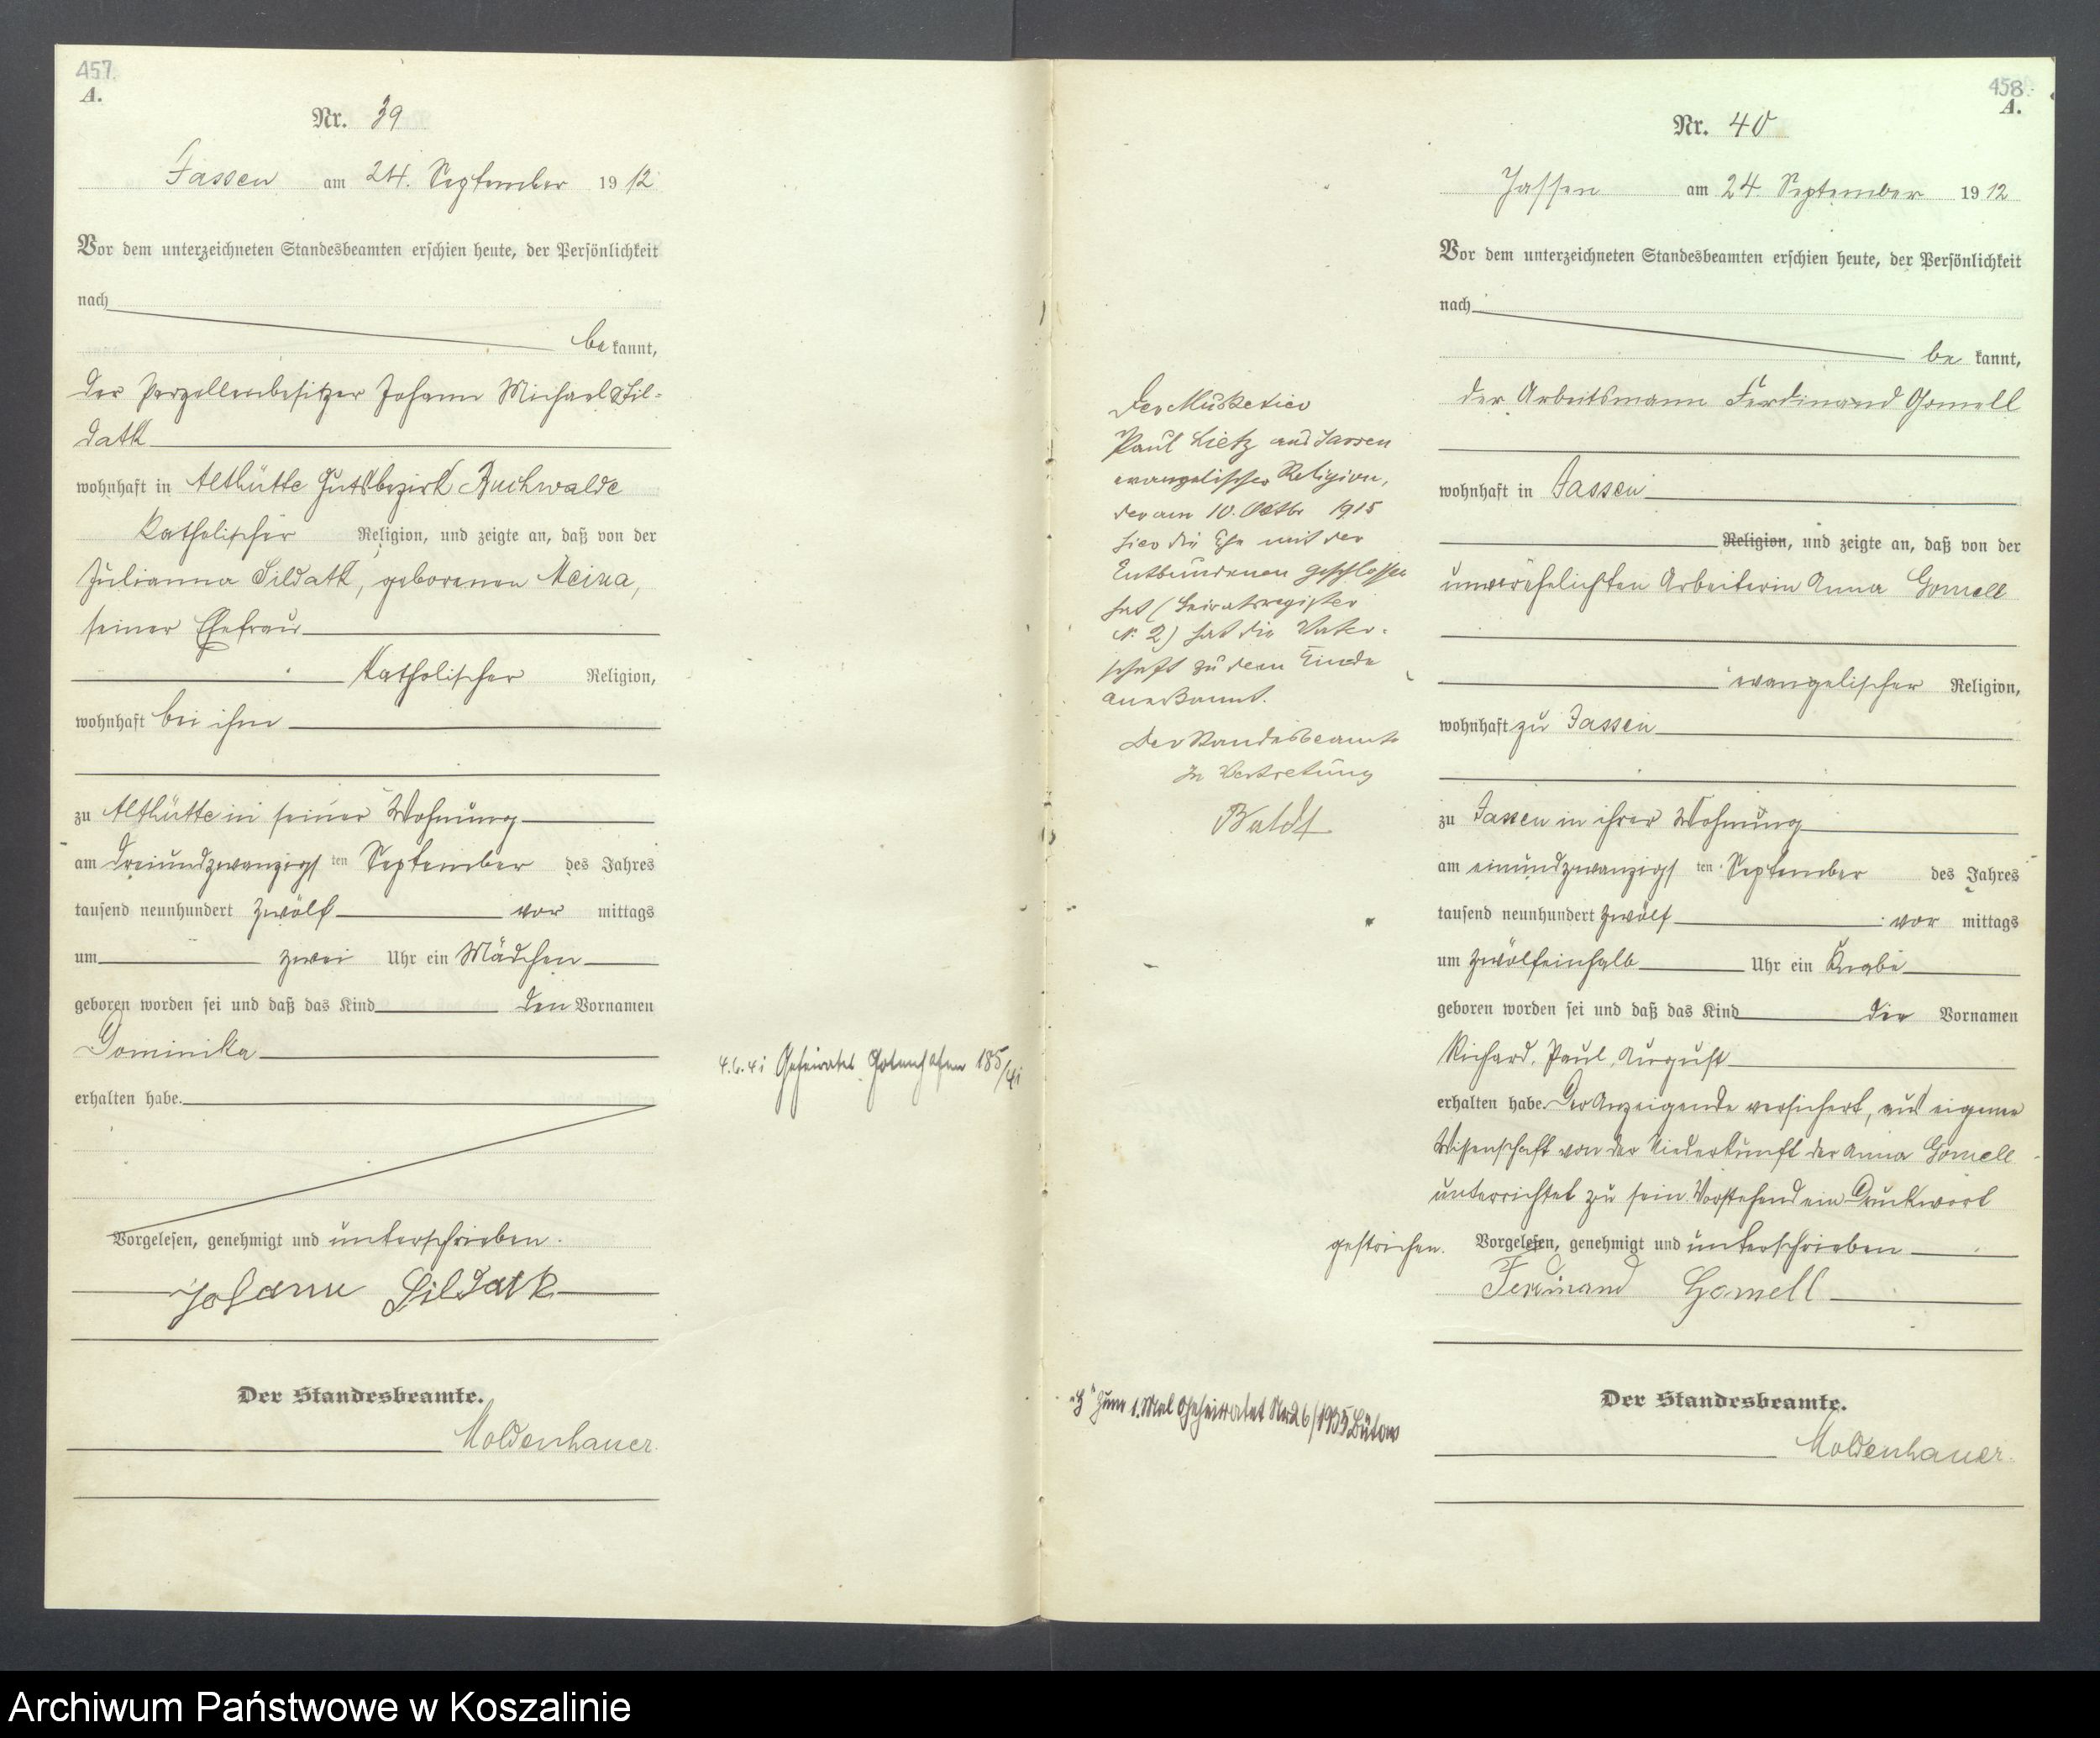 457.
A.
Nr. 39
Jassen am 24. September 1912
Vor dem unterzeichneten Standesbeamten erschien heute, der Persönlichkeit
nach
be kannt,
der Parzellenbesitzer Johann Michael Sil-
datk
wohnhaft in Althütte Gutsbezirk Buchwalde
katholischer Religion, und zeigte an, daß von der
Julianna Sildatk, geborenen
seiner Ehefrau
katholischer Religion,
wohnhaft bei ihm
zu Althütte in seiner Wohnung
am dreiundzwanzigsten September des Jahres
tausend neunhundert zwölf vor mittags
um zwei Uhr ein Mädchen
geboren worden sei und daß das Kind den Vornamen
Dominika
erhalten habe.
Vorgelesen, genehmigt und unterschrieben.
Johann Sildatk
Der Standesbeamte.
Moldenhauer.
4.6.41 Geheiratet Gotenhafen 185/41
458.
A.
Nr. 40
Jassen am 24 September 1912
Vor dem unterzeichneten Standesbeamten erschien heute, der Persönlichkeit
nach
be kannt,
der Arbeitsmann Ferdinand Gomell
wohnhaft in Jassen
Religion, und zeigte an, daß von der
unverehelichten Arbeiterin Anna Gomell
evangelischer Religion,
wohnhaft zu Jassen
zu Jassen in ihrer Wohnung
am einundzwanzigsten September des Jahres
tausend neunhundert zwölf vor mittags
um zwölfeinhalb Uhr ein Knabe
geboren worden sei und daß das Kind die Vornamen
Richard, Paul, August
erhalten habe. Der Anzeigende versichert, aus eigener
Wissenschaft von der Niederkunft der Anna Gomell
unterrichtet zu sein. Vorstehend ein Druckwort
gestrichen. Vorgelesen, genehmigt und unterschrieben
Ferdinand Gomell
Der Standesbeamte.
Moldenhauer.
Der Musketier
Paul Lietz aus Jassen
evangelischer Religion,
der am 10. Oktbr 1915
hier die Ehe mit der
Entbundenen geschlossen
hat (Heiratsregister
N: 2) hat die Vater-
schaft zu dem Kinde
anerkannt.
Der Standesbeamte
In Vertretung
"H" Zum 1. Mal Geheiratet Nr. 26/1935 Bütow
Archiwum Państwowe w Koszalinie